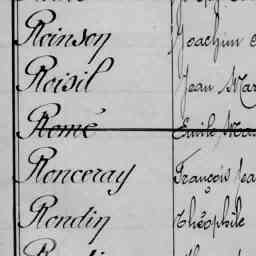 Roinson Joachim
Roisil Jean Mar
Romé Emile Ma
Ronceray François Jea
Rondin Théophile